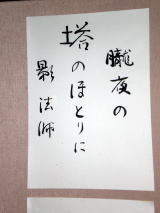 朧夜の
塔のほとりに
影法師